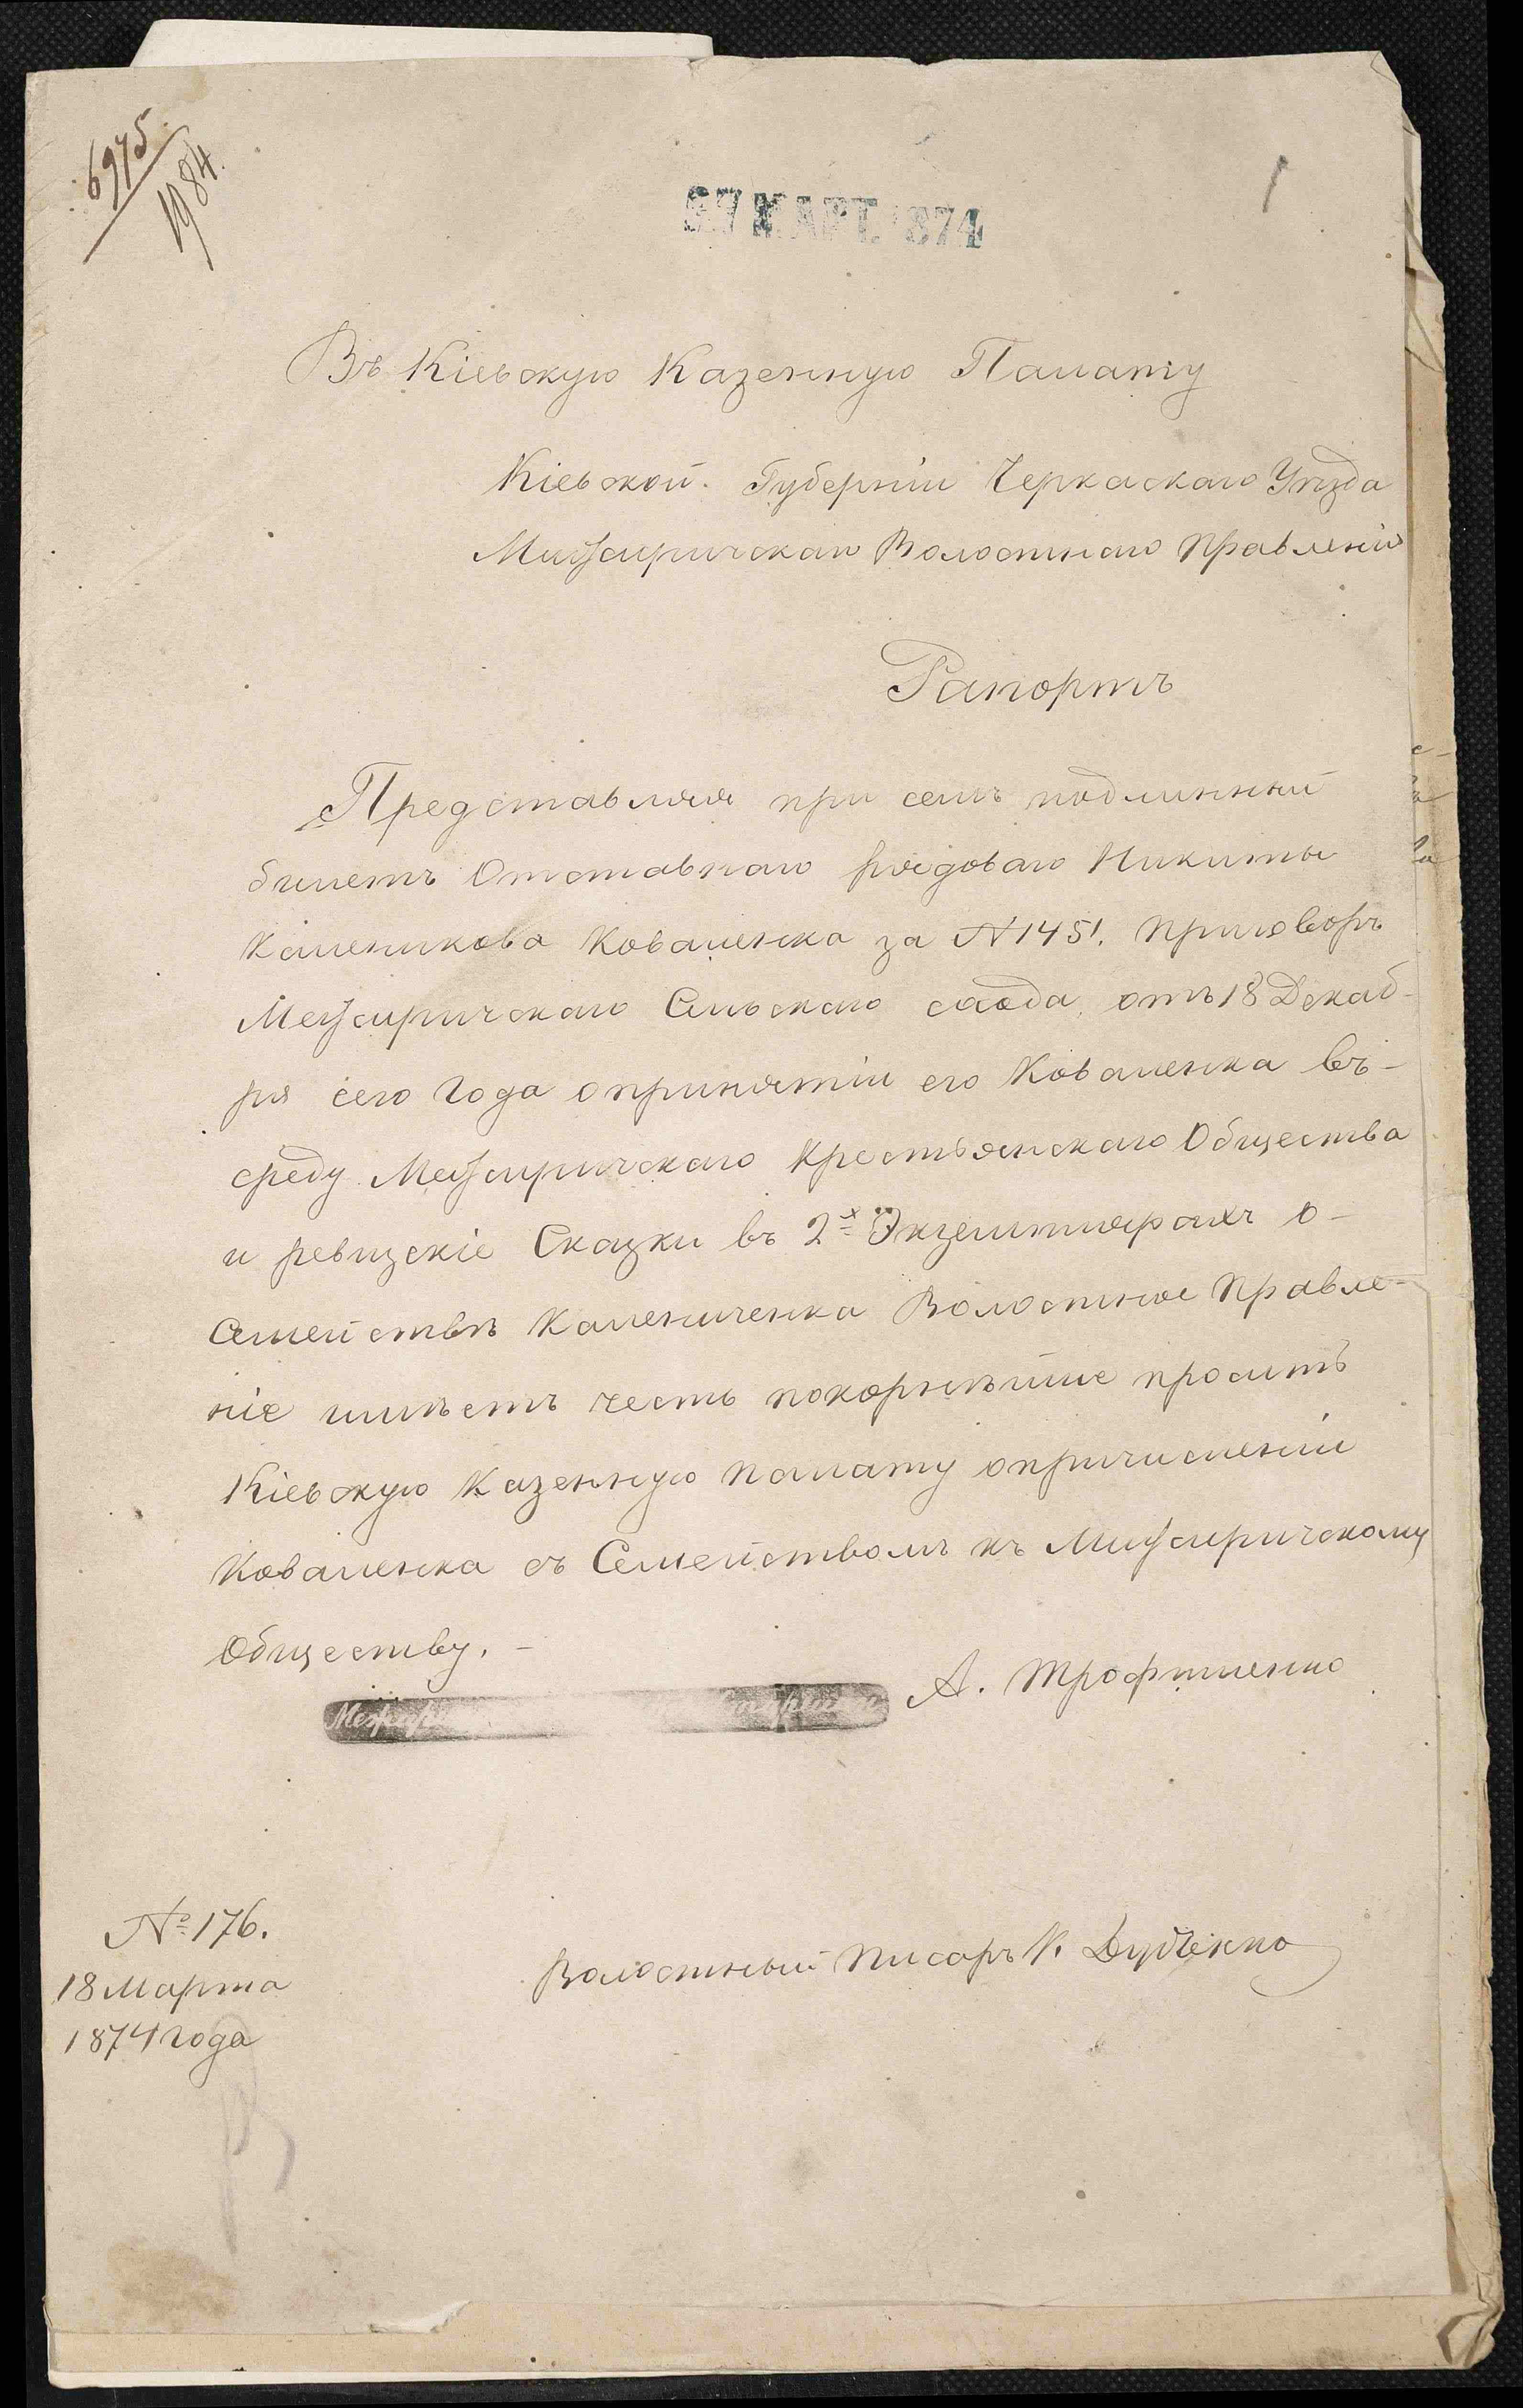 6975
1984.
1
27 МАРТ. 1874
Въ Кіевскую Казенную Палату
Кіевской. Губерніи Черкаскаго Уѣзда
Межиричскаго Волостнаго Правленія
Рапортъ
Представляя при семъ подлинный
билетъ Отставнаго рядоваго Никиты
Каленикова Коваленка за N 1451. приговоръ
Межиричскаго Сельскаго схода, отъ 18 Декаб-
ря сего Года о принятіи его Коваленка въ-
среду Межиричскаго Крестьянскаго Общества
и ревизскіе Сказки въ 2х Экземплярахъ о-
Семействѣ Калениченка Волостное Правле-
ніе имѣетъ честь покорнѣйше просить
Кіевскую Казенную палату о причисленіи
Коваленка съ Семействомъ къ Межиричскому
Обществу. -
А. Трофименко
№ 176.
18 Марта
1874 года
Волостный Писарь К. Дудченко